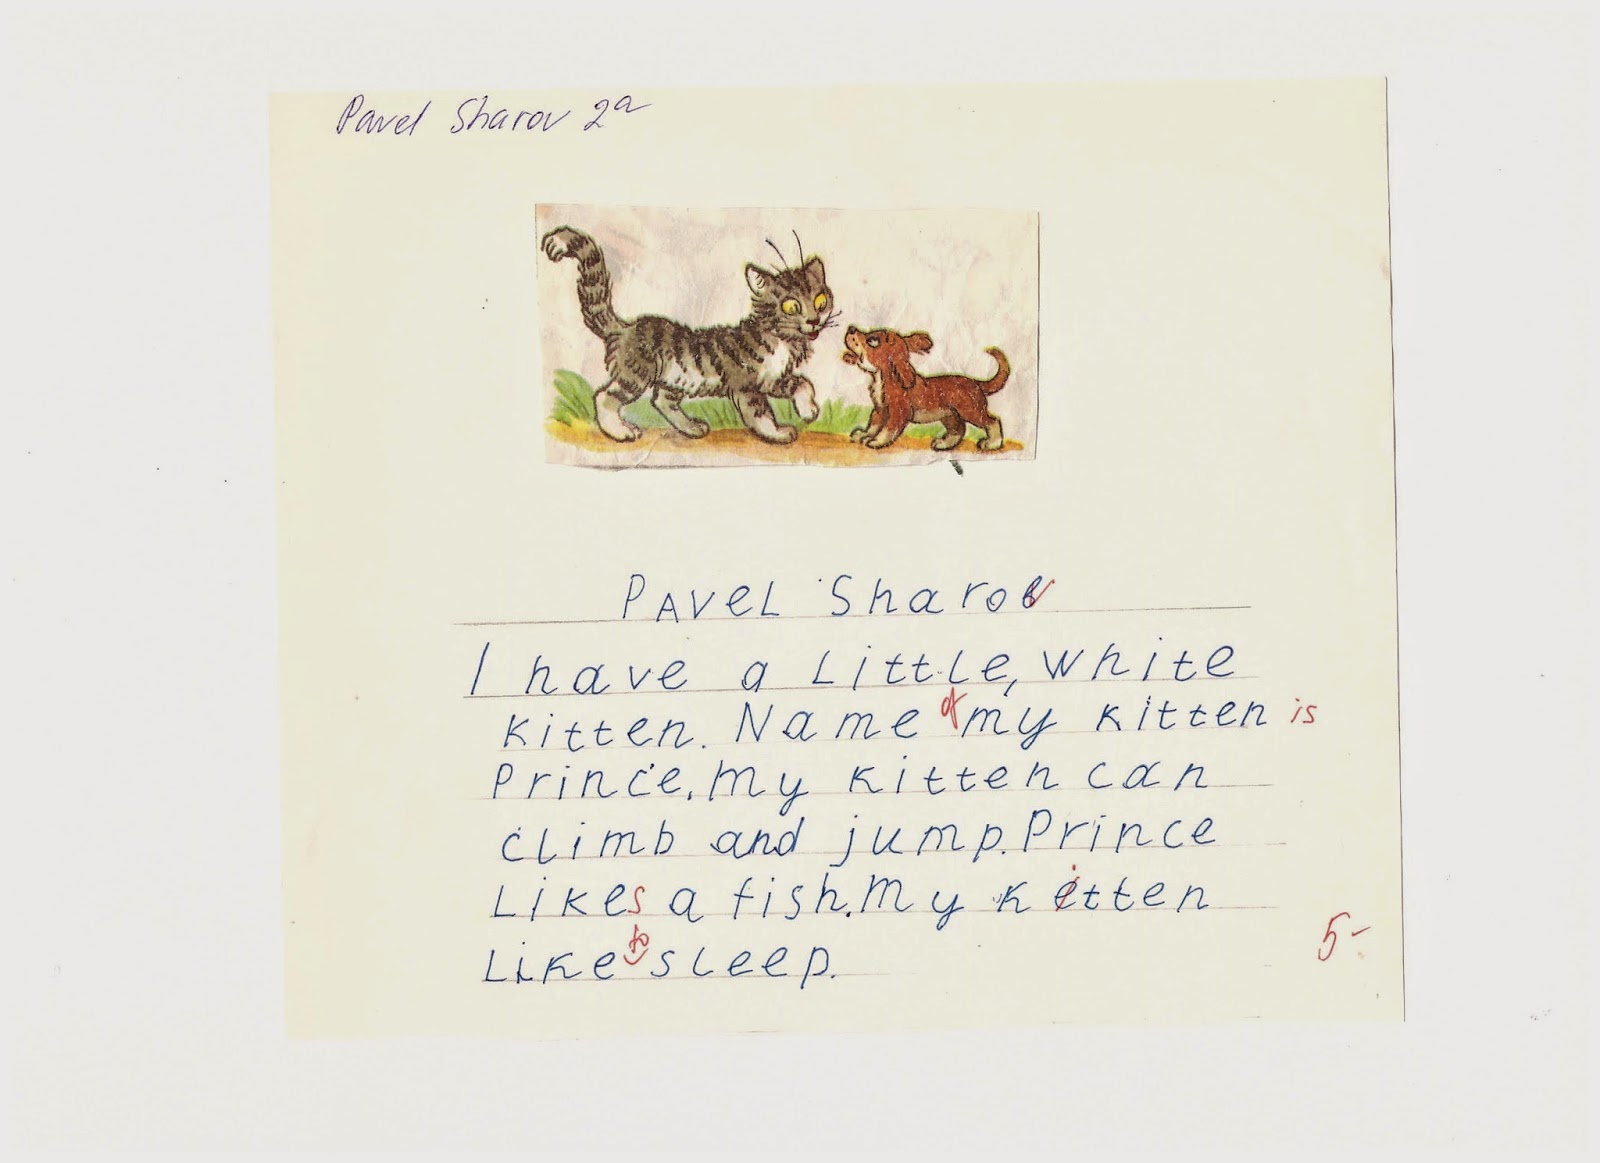 Pavel Sharov 2a
Pavel Sharov
I have a little, white
kitten. Name of my kitten is
Prince. My kitten can
climb and jump. Prince
likes a fish. My kitten
like to sleep.
5-